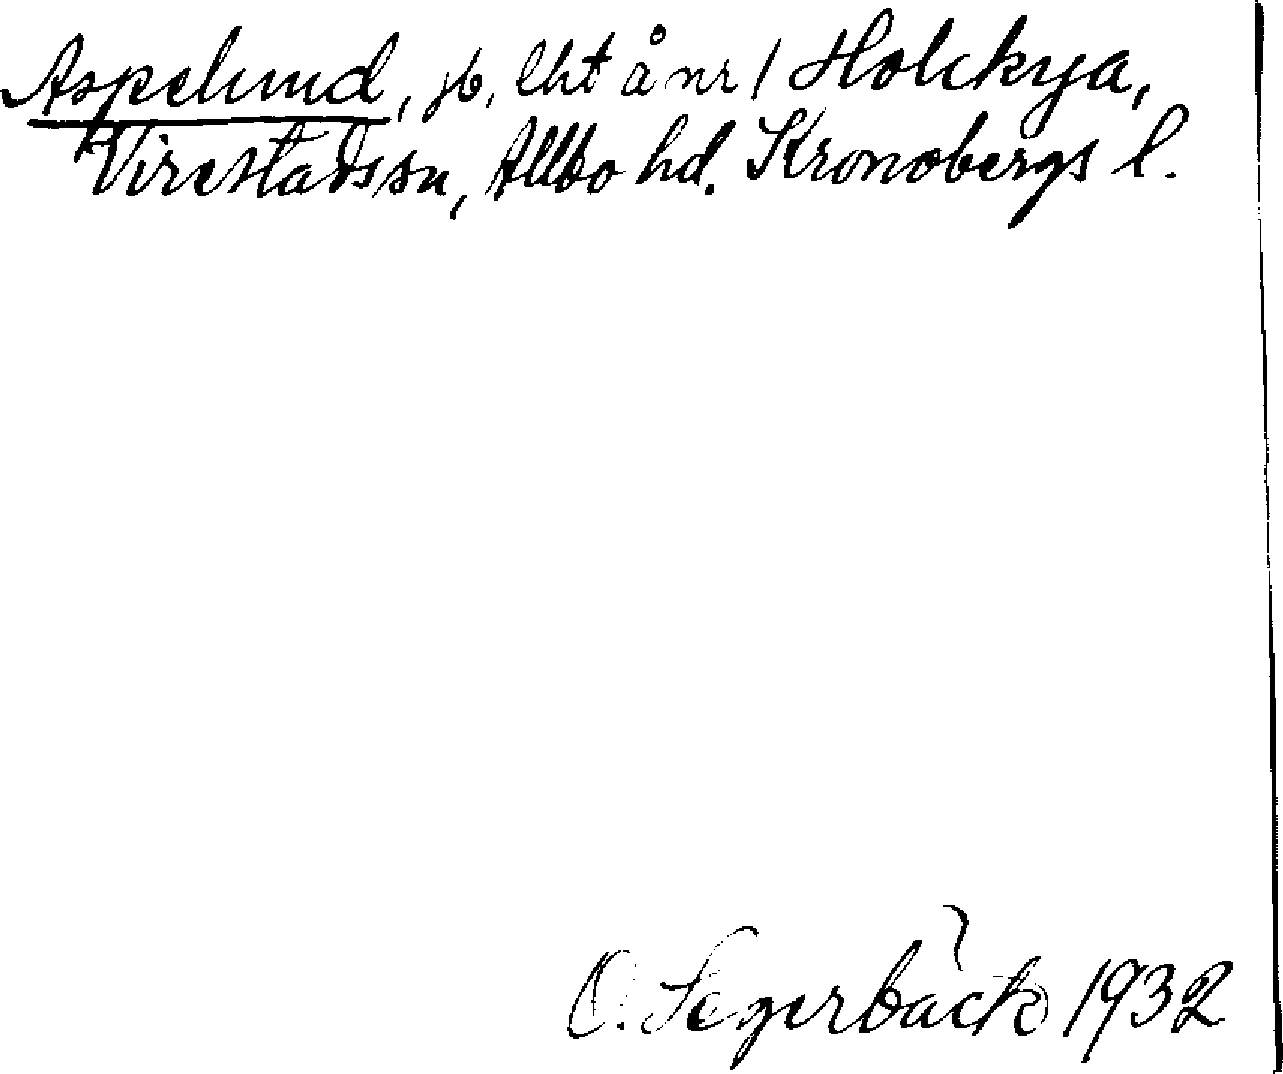 Aspelund, jb, lht å nr 1 Holckya,
Virestads sn, Allbo hd. Kronobergs l.
O. Segerbäck 1932